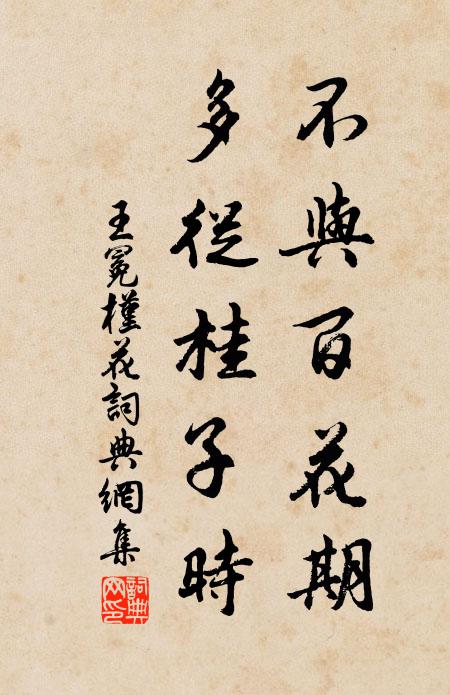 不與百花期
多從桂子時
王冕槿花詞典網集
詞典网印